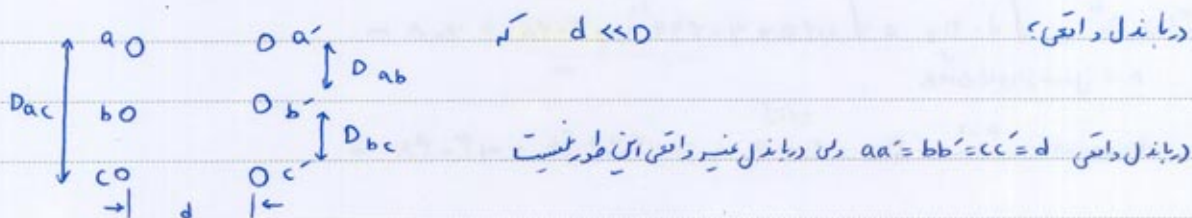 در باندل واقعی؛
d << D که
a a′
D ab
Dac b b′
D bc
c c′
d
در باندل واقعی aa′ = bb′ = cc′ = d ولی در باندل غیر واقعی این طور نیست